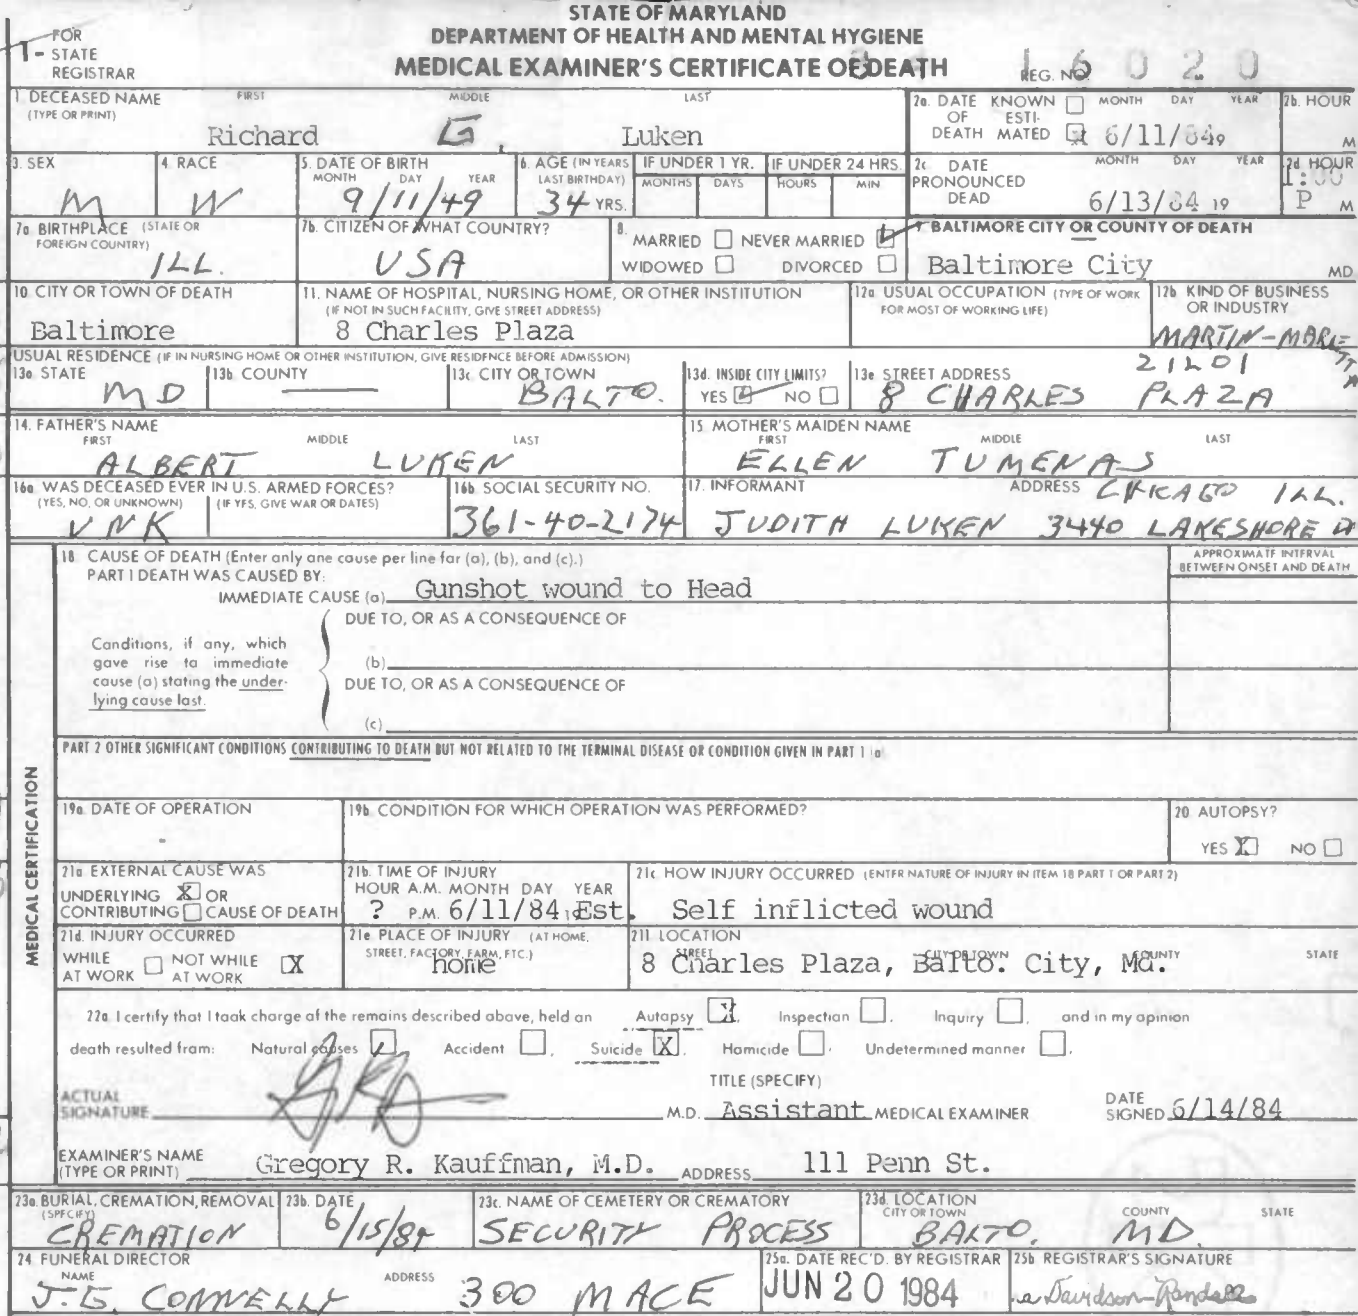 STATE OF MARYLAND
DEPARTMENT OF HEALTH AND MENTAL HYGIENE
MEDICAL EXAMINER'S CERTIFICATE OF DEATH
FOR
1 - STATE
REGISTRAR
REG. NO. 16020
1 DECEASED NAME FIRST MIDDLE LAST
(TYPE OR PRINT)
Richard G. Luken
2a. DATE KNOWN MONTH DAY YEAR 2b. HOUR
OF ESTI-
DEATH MATED 6/11/84 19 M
3. SEX 4. RACE 5. DATE OF BIRTH 6. AGE (IN YEARS IF UNDER 1 YR. IF UNDER 24 HRS.
MONTH DAY YEAR LAST BIRTHDAY) MONTHS DAYS HOURS MIN
M W 9/11/49 34 YRS.
2c. DATE MONTH DAY YEAR 2d. HOUR
PRONOUNCED 1:00
DEAD 6/13/84 19 P M
7a. BIRTHPLACE (STATE OR
FOREIGN COUNTRY)
ILL.
7b. CITIZEN OF WHAT COUNTRY?
USA
8. MARRIED NEVER MARRIED
WIDOWED DIVORCED
BALTIMORE CITY OR COUNTY OF DEATH
Baltimore City MD
10. CITY OR TOWN OF DEATH
Baltimore
11. NAME OF HOSPITAL, NURSING HOME, OR OTHER INSTITUTION
(IF NOT IN SUCH FACILITY, GIVE STREET ADDRESS)
8 Charles Plaza
12a. USUAL OCCUPATION (TYPE OF WORK
FOR MOST OF WORKING LIFE)
12b. KIND OF BUSINESS
OR INDUSTRY
MARTIN-MARIETTA
USUAL RESIDENCE (IF IN NURSING HOME OR OTHER INSTITUTION, GIVE RESIDENCE BEFORE ADMISSION)
13a. STATE 13b. COUNTY 13c. CITY OR TOWN 13d. INSIDE CITY LIMITS? 13e. STREET ADDRESS 21201
MD — BALTO. YES NO 8 CHARLES PLAZA
14. FATHER'S NAME
FIRST MIDDLE LAST
ALBERT LUKEN
15. MOTHER'S MAIDEN NAME
FIRST MIDDLE LAST
ELLEN TUMENAS
16a. WAS DECEASED EVER IN U.S. ARMED FORCES?
(YES, NO, OR UNKNOWN) (IF YES, GIVE WAR OR DATES)
UNK
16b. SOCIAL SECURITY NO.
361-40-2174
17. INFORMANT ADDRESS CHICAGO ILL.
JUDITH LUKEN 3440 LAKESHORE DR
MEDICAL CERTIFICATION
18. CAUSE OF DEATH (Enter only one cause per line for (a), (b), and (c).)
PART I DEATH WAS CAUSED BY:
IMMEDIATE CAUSE (a) Gunshot wound to Head
APPROXIMATE INTERVAL
BETWEEN ONSET AND DEATH
DUE TO, OR AS A CONSEQUENCE OF
Conditions, if any, which
gave rise to immediate
cause (a) stating the under-
lying cause last.
(b)
DUE TO, OR AS A CONSEQUENCE OF
(c)
PART 2 OTHER SIGNIFICANT CONDITIONS CONTRIBUTING TO DEATH BUT NOT RELATED TO THE TERMINAL DISEASE OR CONDITION GIVEN IN PART 1 (a)
19a. DATE OF OPERATION
19b. CONDITION FOR WHICH OPERATION WAS PERFORMED?
20 AUTOPSY?
YES X NO
21a. EXTERNAL CAUSE WAS
UNDERLYING X OR
CONTRIBUTING CAUSE OF DEATH
21b. TIME OF INJURY
HOUR A.M. MONTH DAY YEAR
? P.M. 6/11/84 19 Est.
21c. HOW INJURY OCCURRED (ENTER NATURE OF INJURY IN ITEM 18 PART 1 OR PART 2)
Self inflicted wound
21d. INJURY OCCURRED
WHILE NOT WHILE X
AT WORK AT WORK
21e. PLACE OF INJURY (AT HOME,
STREET, FACTORY, FARM, ETC.)
home
21f. LOCATION
STREET CITY OR TOWN COUNTY STATE
8 Charles Plaza, Balto. City, Md.
22a. I certify that I took charge of the remains described above, held an Autopsy X, Inspection , Inquiry , and in my opinion
death resulted from: Natural causes , Accident , Suicide X, Homicide , Undetermined manner .
ACTUAL
SIGNATURE M.D.
TITLE (SPECIFY)
Assistant MEDICAL EXAMINER
DATE
SIGNED 6/14/84
EXAMINER'S NAME
(TYPE OR PRINT) Gregory R. Kauffman, M.D. ADDRESS 111 Penn St.
23a. BURIAL, CREMATION, REMOVAL
(SPECIFY)
CREMATION
23b. DATE
6/15/84
23c. NAME OF CEMETERY OR CREMATORY
SECURITY PROCESS
23d. LOCATION
CITY OR TOWN COUNTY STATE
BALTO. MD.
24 FUNERAL DIRECTOR
NAME ADDRESS
J.E. CONNELLY 300 MACE
25a. DATE REC'D. BY REGISTRAR
JUN 20 1984
25b. REGISTRAR'S SIGNATURE
Davidson-Randall